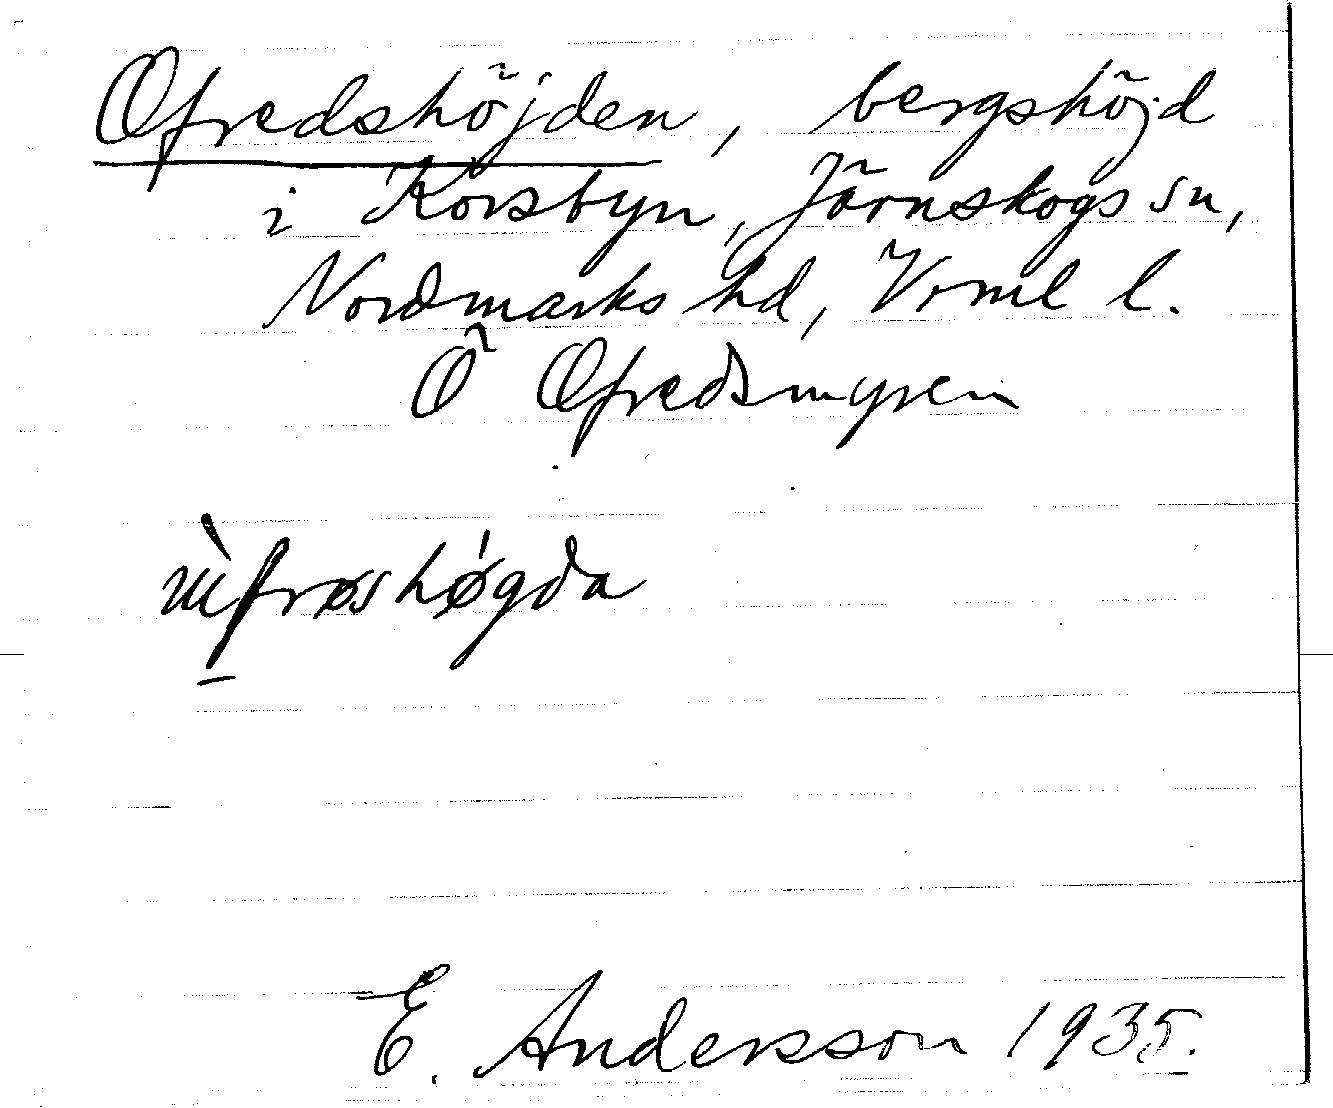 Ofredshöjden, bergshöjd
i Korsbyn, Järnskogs sn,
Nordmarks hd, Vrml l.
Ö Ofredsmyren
ùfrøshǿgda
E. Andersson 1935.